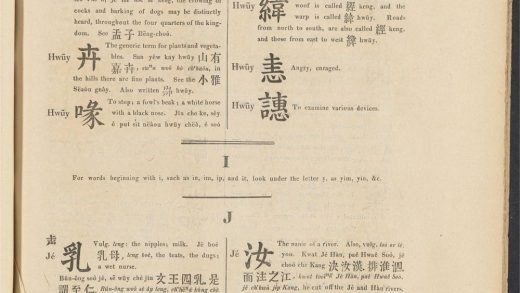 cocks and barking of dogs may be distinctly
heard, throughout the four quarters of the king-
dom. See 孟子 Bēng-choó.
Hwūy 卉 The generic term for plants and vegeta-
bles. San yéw kay hwūy 山有
嘉卉
the hills there are fine plants. See the 小雅
Also written
Hwūy 喙 To stop; a fowl's beak; a white horse
with a black nose.
Hwūy 緯 woof is called 經 keng, and the
warp is called 緯 hwūy. Roads
from north to south, are also called 經 keng.
and those from east to west 緯 hwūy.
Hwūy 恚 Angry, enraged.
Hwūy 譓 To examine various devices.
I
For words beginning with i, such as in, im, ip, and it, look under the letter y, as yim, yin, &c.
J
Jé 乳 Vulg. leng: the nipples, milk. Jé boé
乳母, leng boé, the teats, the dugs;
a wet nurse.
文王四乳是
謂至仁
Jé 汝 The name of a river. Also, vulg. loo or lé
you. Kwat Jé Hàn, paé Hwaé Soō,
決汝漢, 排淮泗
而注之江
he cut off the Jé and Hàn rivers,